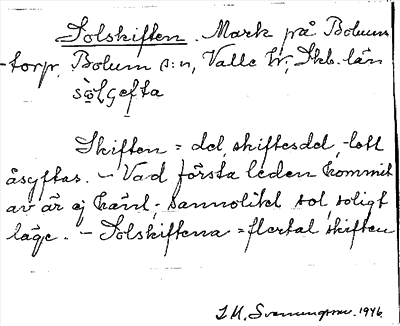 Solskiften. Mark på Bolum-
-torp, Bolum s:n, Valle hr, Skb. län
Skiften = del, skiftesdel, -lott
åsyftas. - Vad första leden kommit
av är ej känt; sannolikt sol, soligt
läge. - Solskiftena = flertal skiften
J. M. Svenungsson. 1946